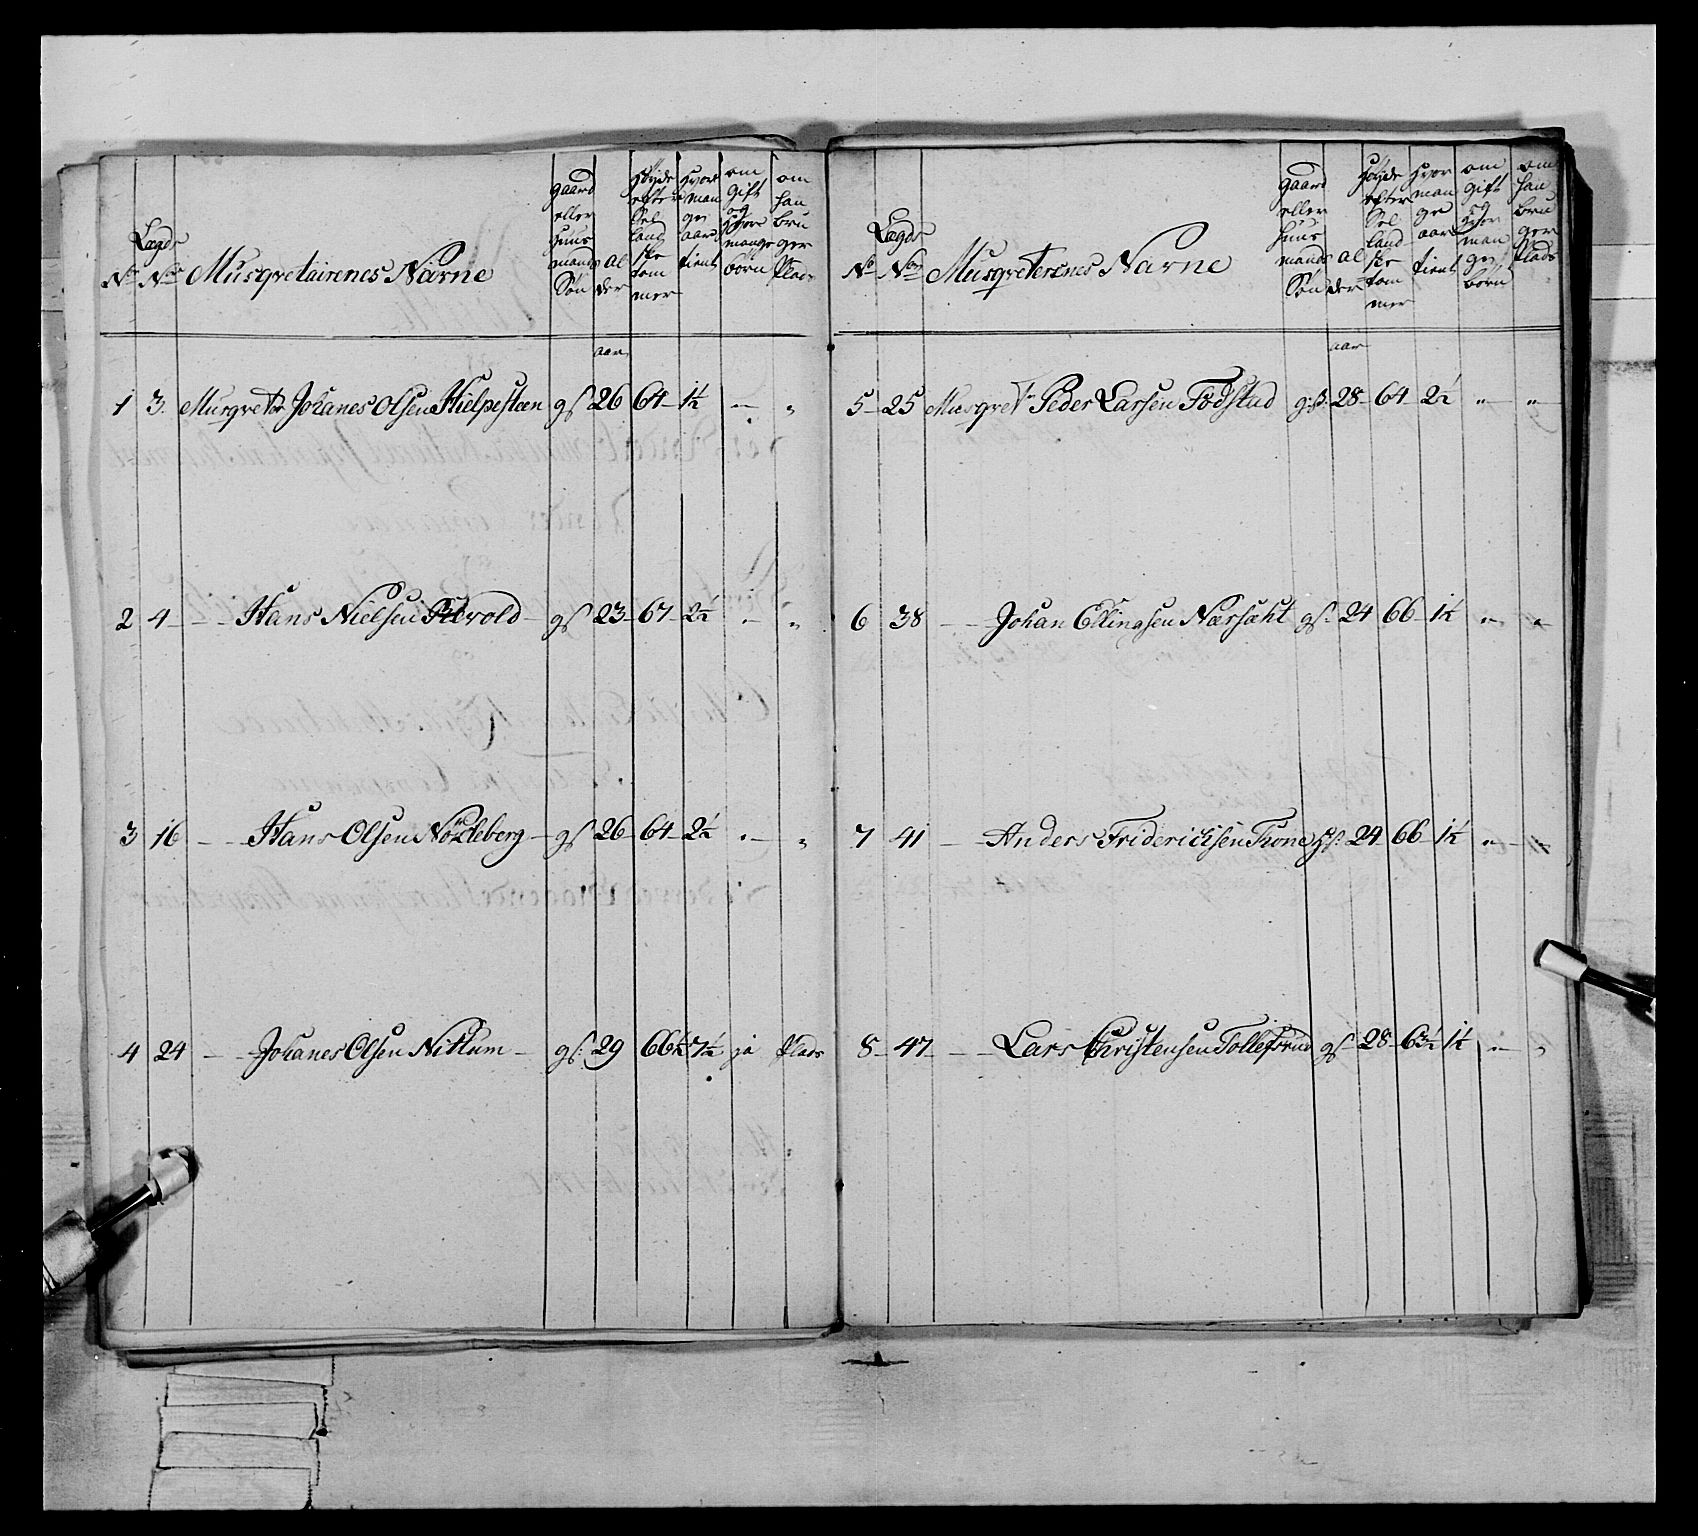 Lægds
No No Musqvetairenes Navne
gaard eller Huus mands Søn
al der
Høyde efter Sel land ske tom mer
Hvor man ge aar tient
om Gift og Hvor mange børn
om han bru ger Plads
aar
1 3. Musqvetr Johanes Olsen Hielpesteen gs 26 64 1½ — "
2 4 — — Hans Nielsen gs 23 67 2½ " "
3 16 — — Hans Olsen Nordeberg gs 26 64 2½ " "
4 24 — — Johanes Olsen Nitlum gs: 29 66½ 7½ ja Plads
Lægds
No No Musqveterenes Navne
gaard eller huus mands Søn
al der
Høyde efter Sel land ske tom mer
Hvor man ge aar tient
om gift og Hvor man ge børn
om han bru ger Plads
aar
5 25 Musqvetr Peder Larsen Fodstad g:s: 28 64 2½ " "
6 38 — — Johan Ellingsen Nærsæht gs: 24 66 1½ " "
7 41 — — Anders Friderichsen Trone gs: 24 66 1½ " "
8 47 — — Lars Christensen Tollefsrud gs 28 63½ 1½ " "